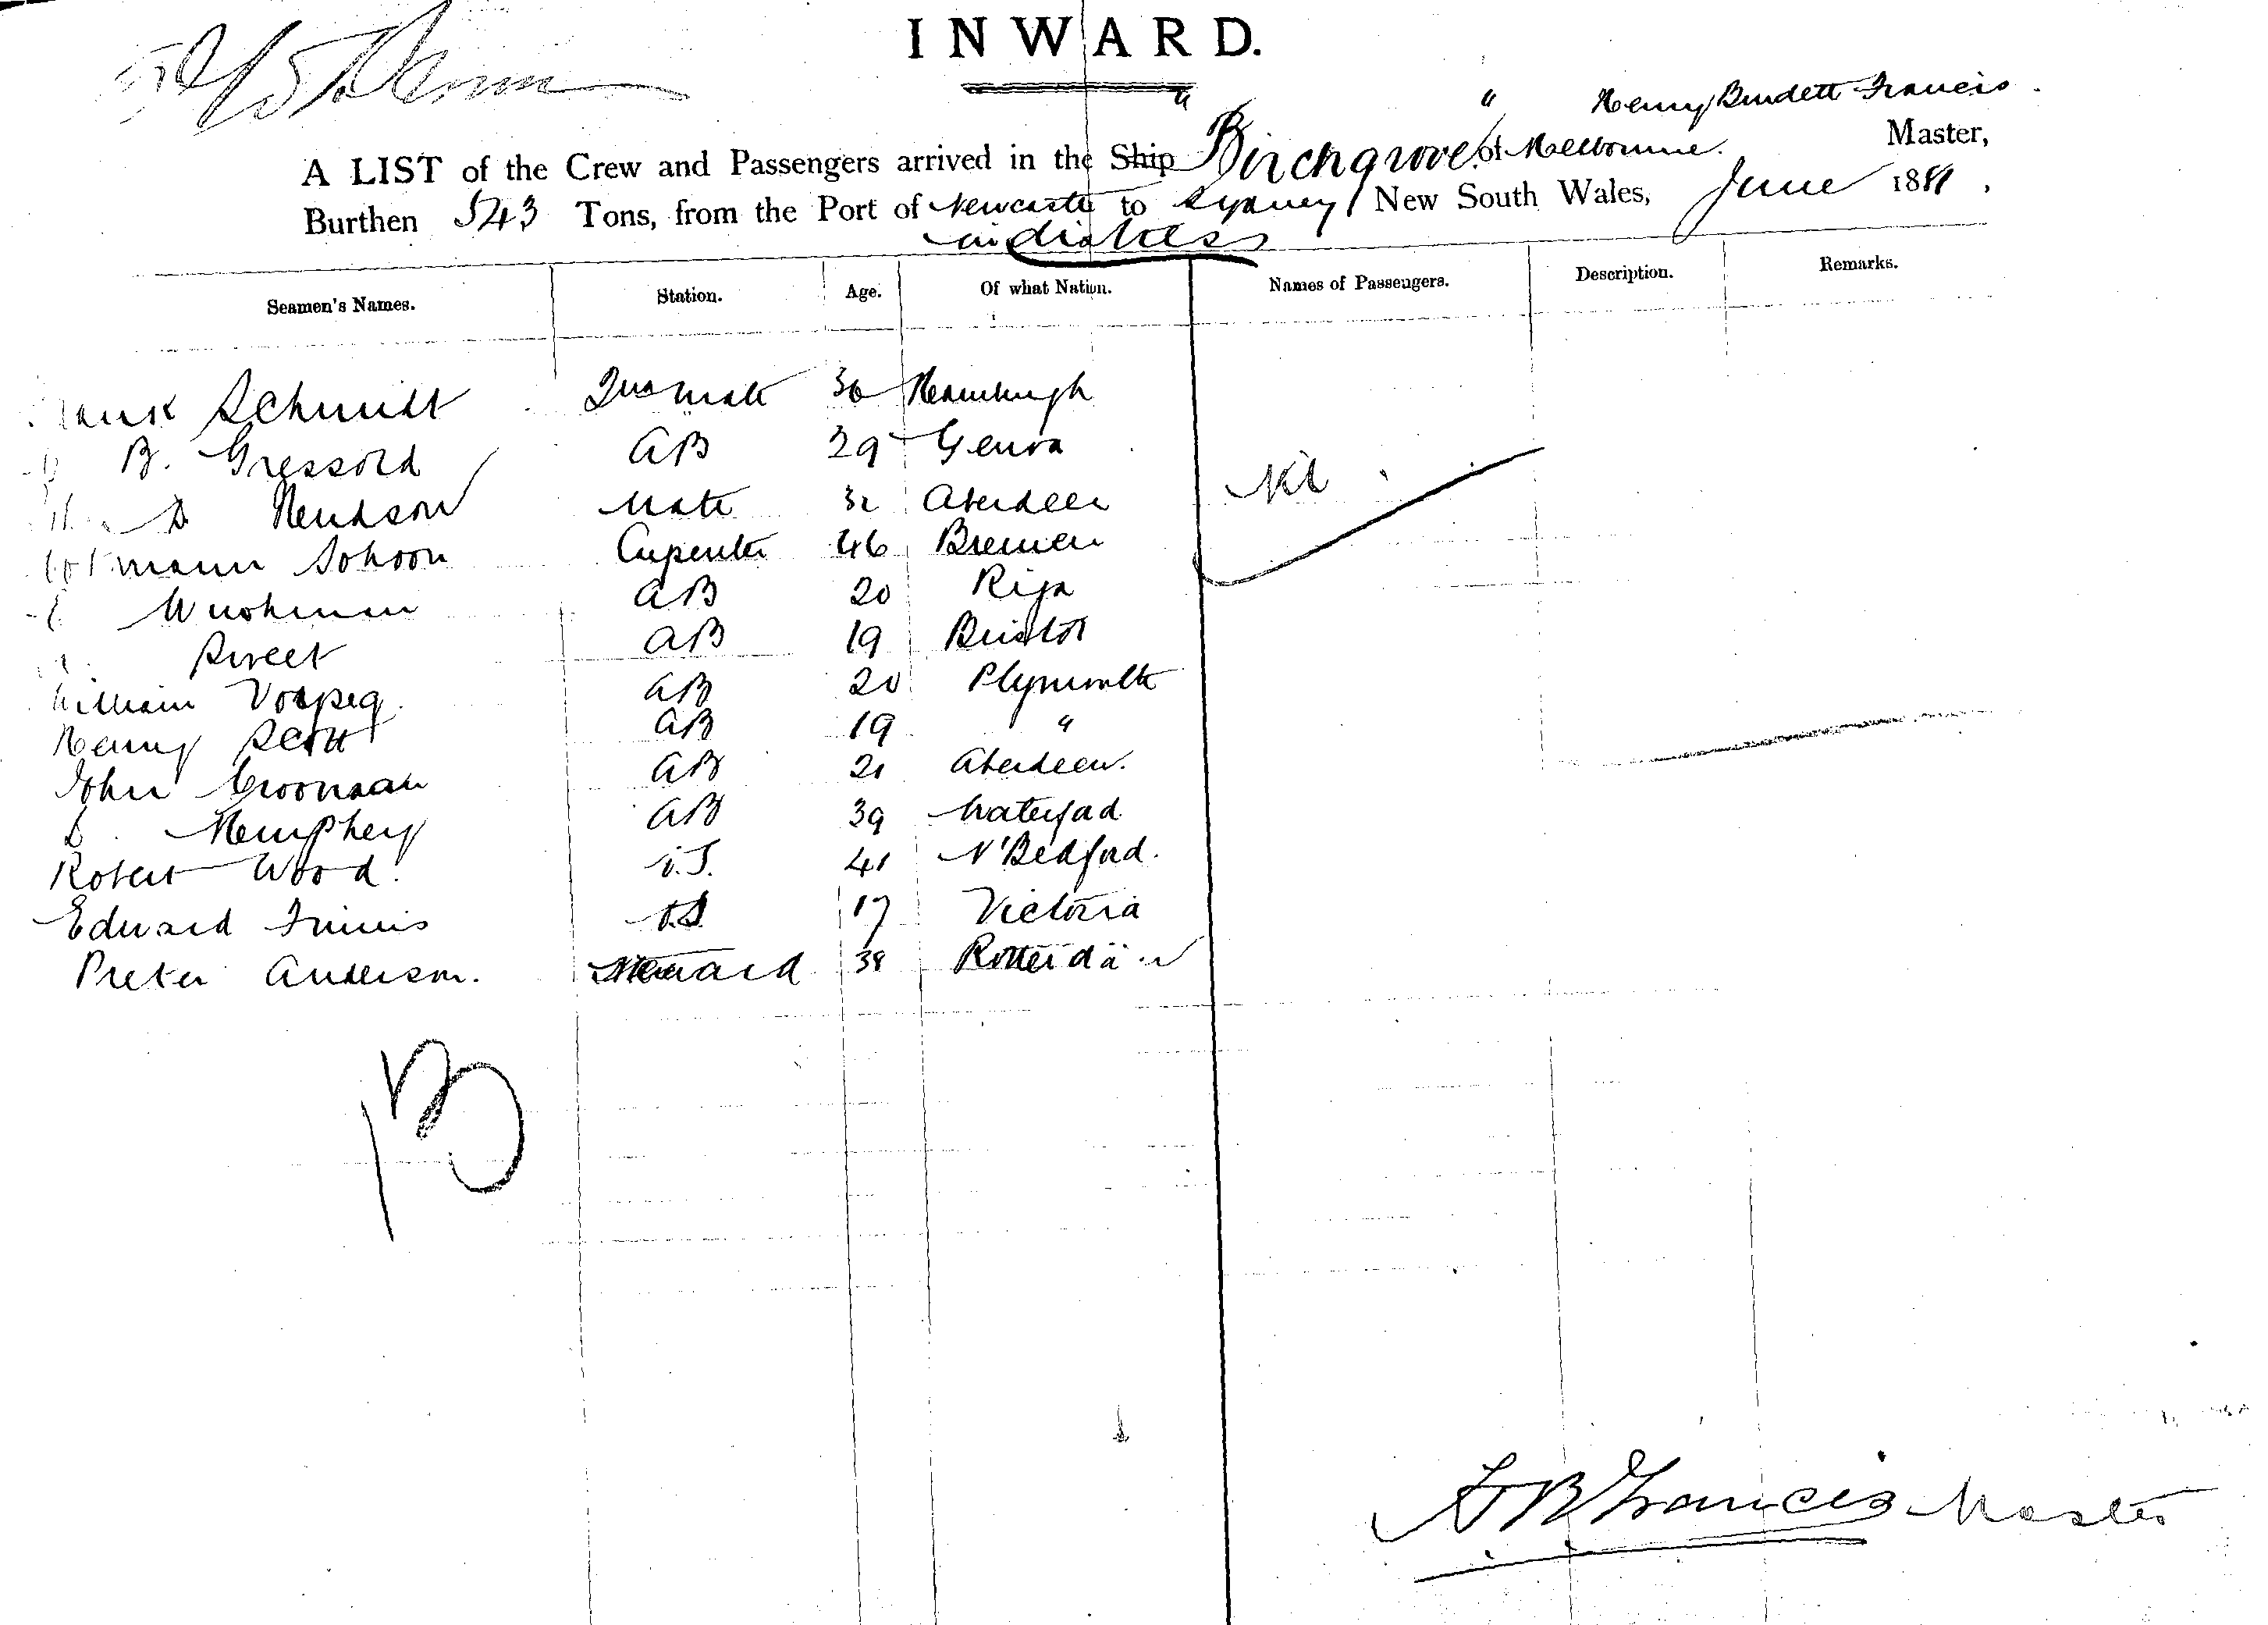 INWARD.
" " Henry Burdett Francis.
A LIST of the Crew and Passengers arrived in the Ship Birchgrove of Melbourne. Master,
Burthen 543 Tons, from the Port of Newcastle to Sydney New South Wales, June 1881.
in distress
Seamen's Names. Station. Age. Of what Nation. Names of Passengers. Description. Remarks.
Schmidt 2nd Mate 36 Hamburgh
B. Gressord AB 29 Genoa
D Hendson Mate 32 Aberdeen Nil
Sohoon Carpenter 46 Bremen
AB 20 Riga
Street AB 19 Bristol
William AB 20 Plymouth
Henry Scott AB 19 "
John AB 21 Aberdeen.
Hemphery AB 39 Waterford
Robert Wood. 41 N'Bedford.
Edward 17 Victoria
Preter Anderson. Steward 38 Rotterdam
13
H B Francis Master